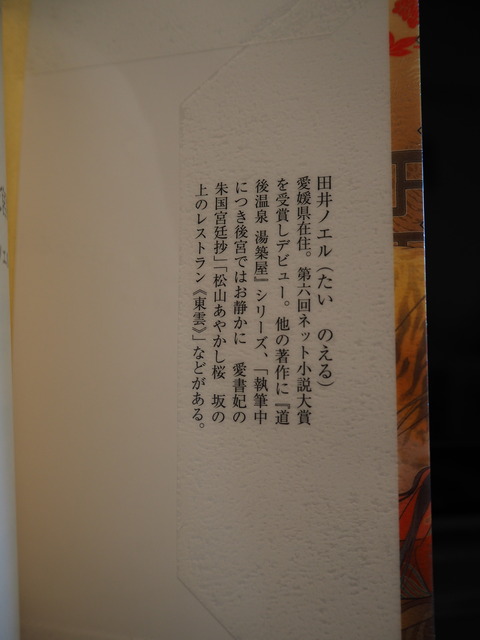 田井ノエル（たい　のえる）
愛媛県在住。第六回ネット小説大賞
を受賞しデビュー。他の著作に『道
後温泉 湯築屋』シリーズ、「執筆中
につき後宮ではお静かに　愛書妃の
朱国宮廷抄」「松山あやかし桜　坂の
上のレストラン《東雲》」などがある。